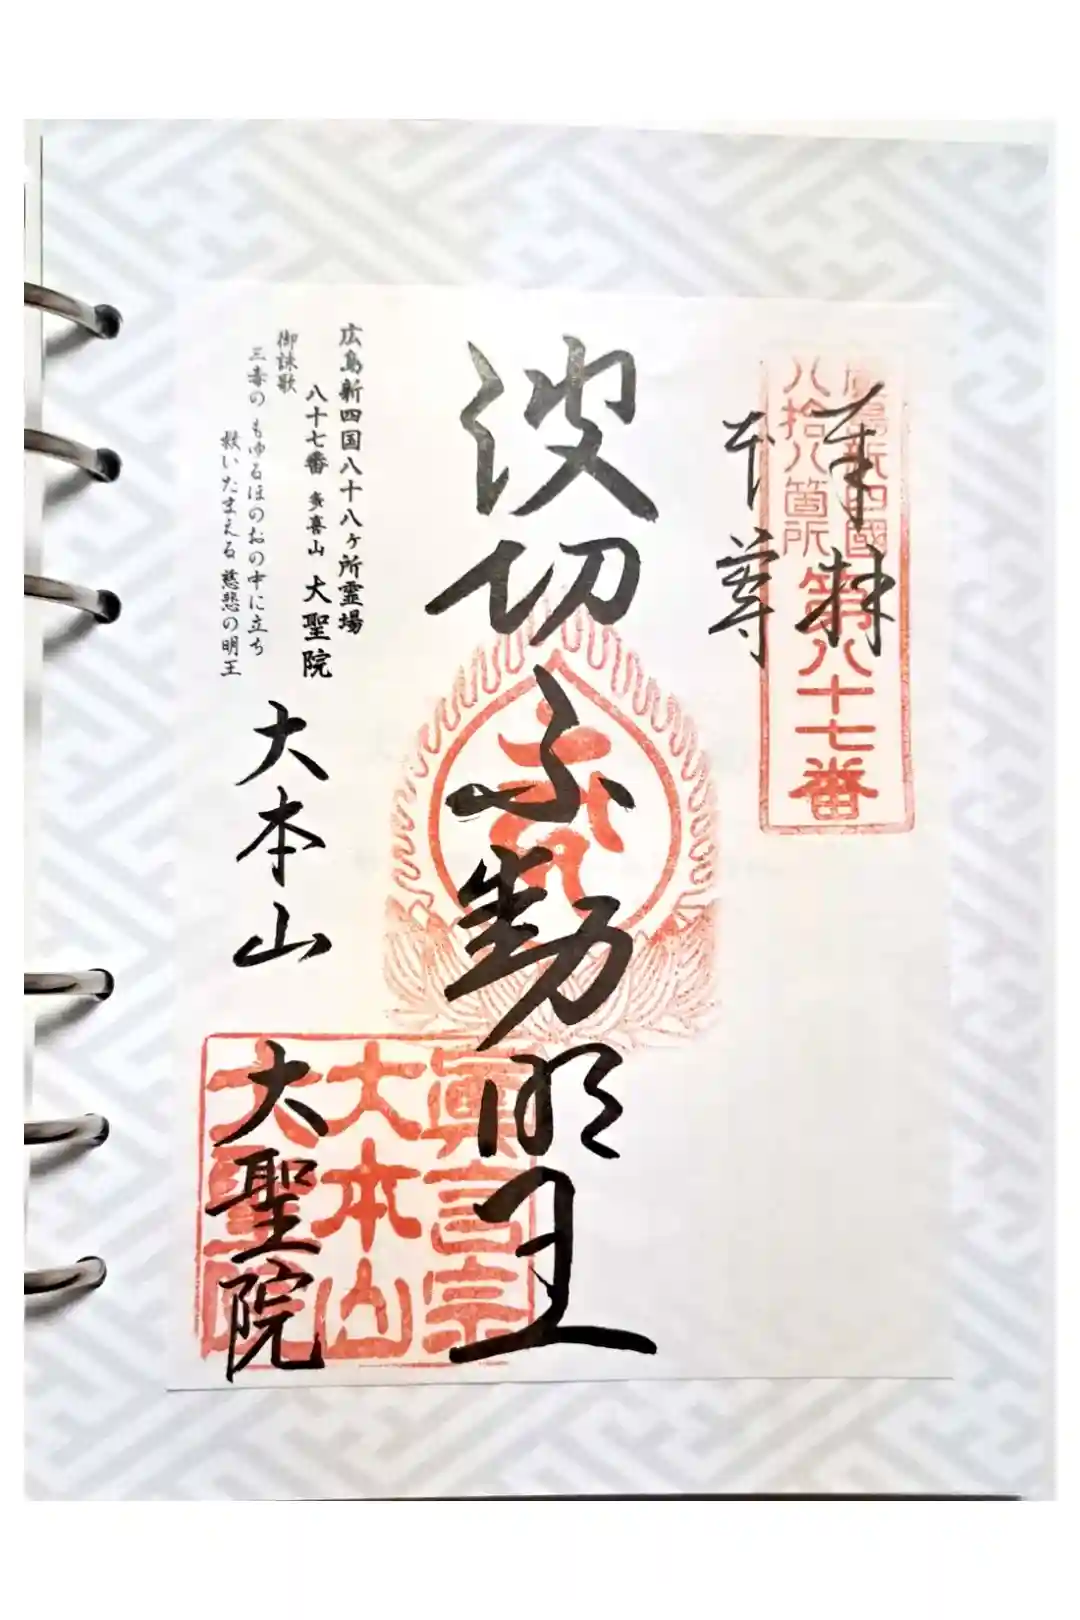 廣島新四國
八拾八箇所
第八十七番
奉拝
本尊
波切不動明王
広島新四国八十八ヶ所霊場
八十七番 多喜山 大聖院
御詠歌
三毒の もゆるほのおの中に立ち
救いたまえる 慈悲の明王
大本山
大聖院
眞言宗
大本山
大聖院